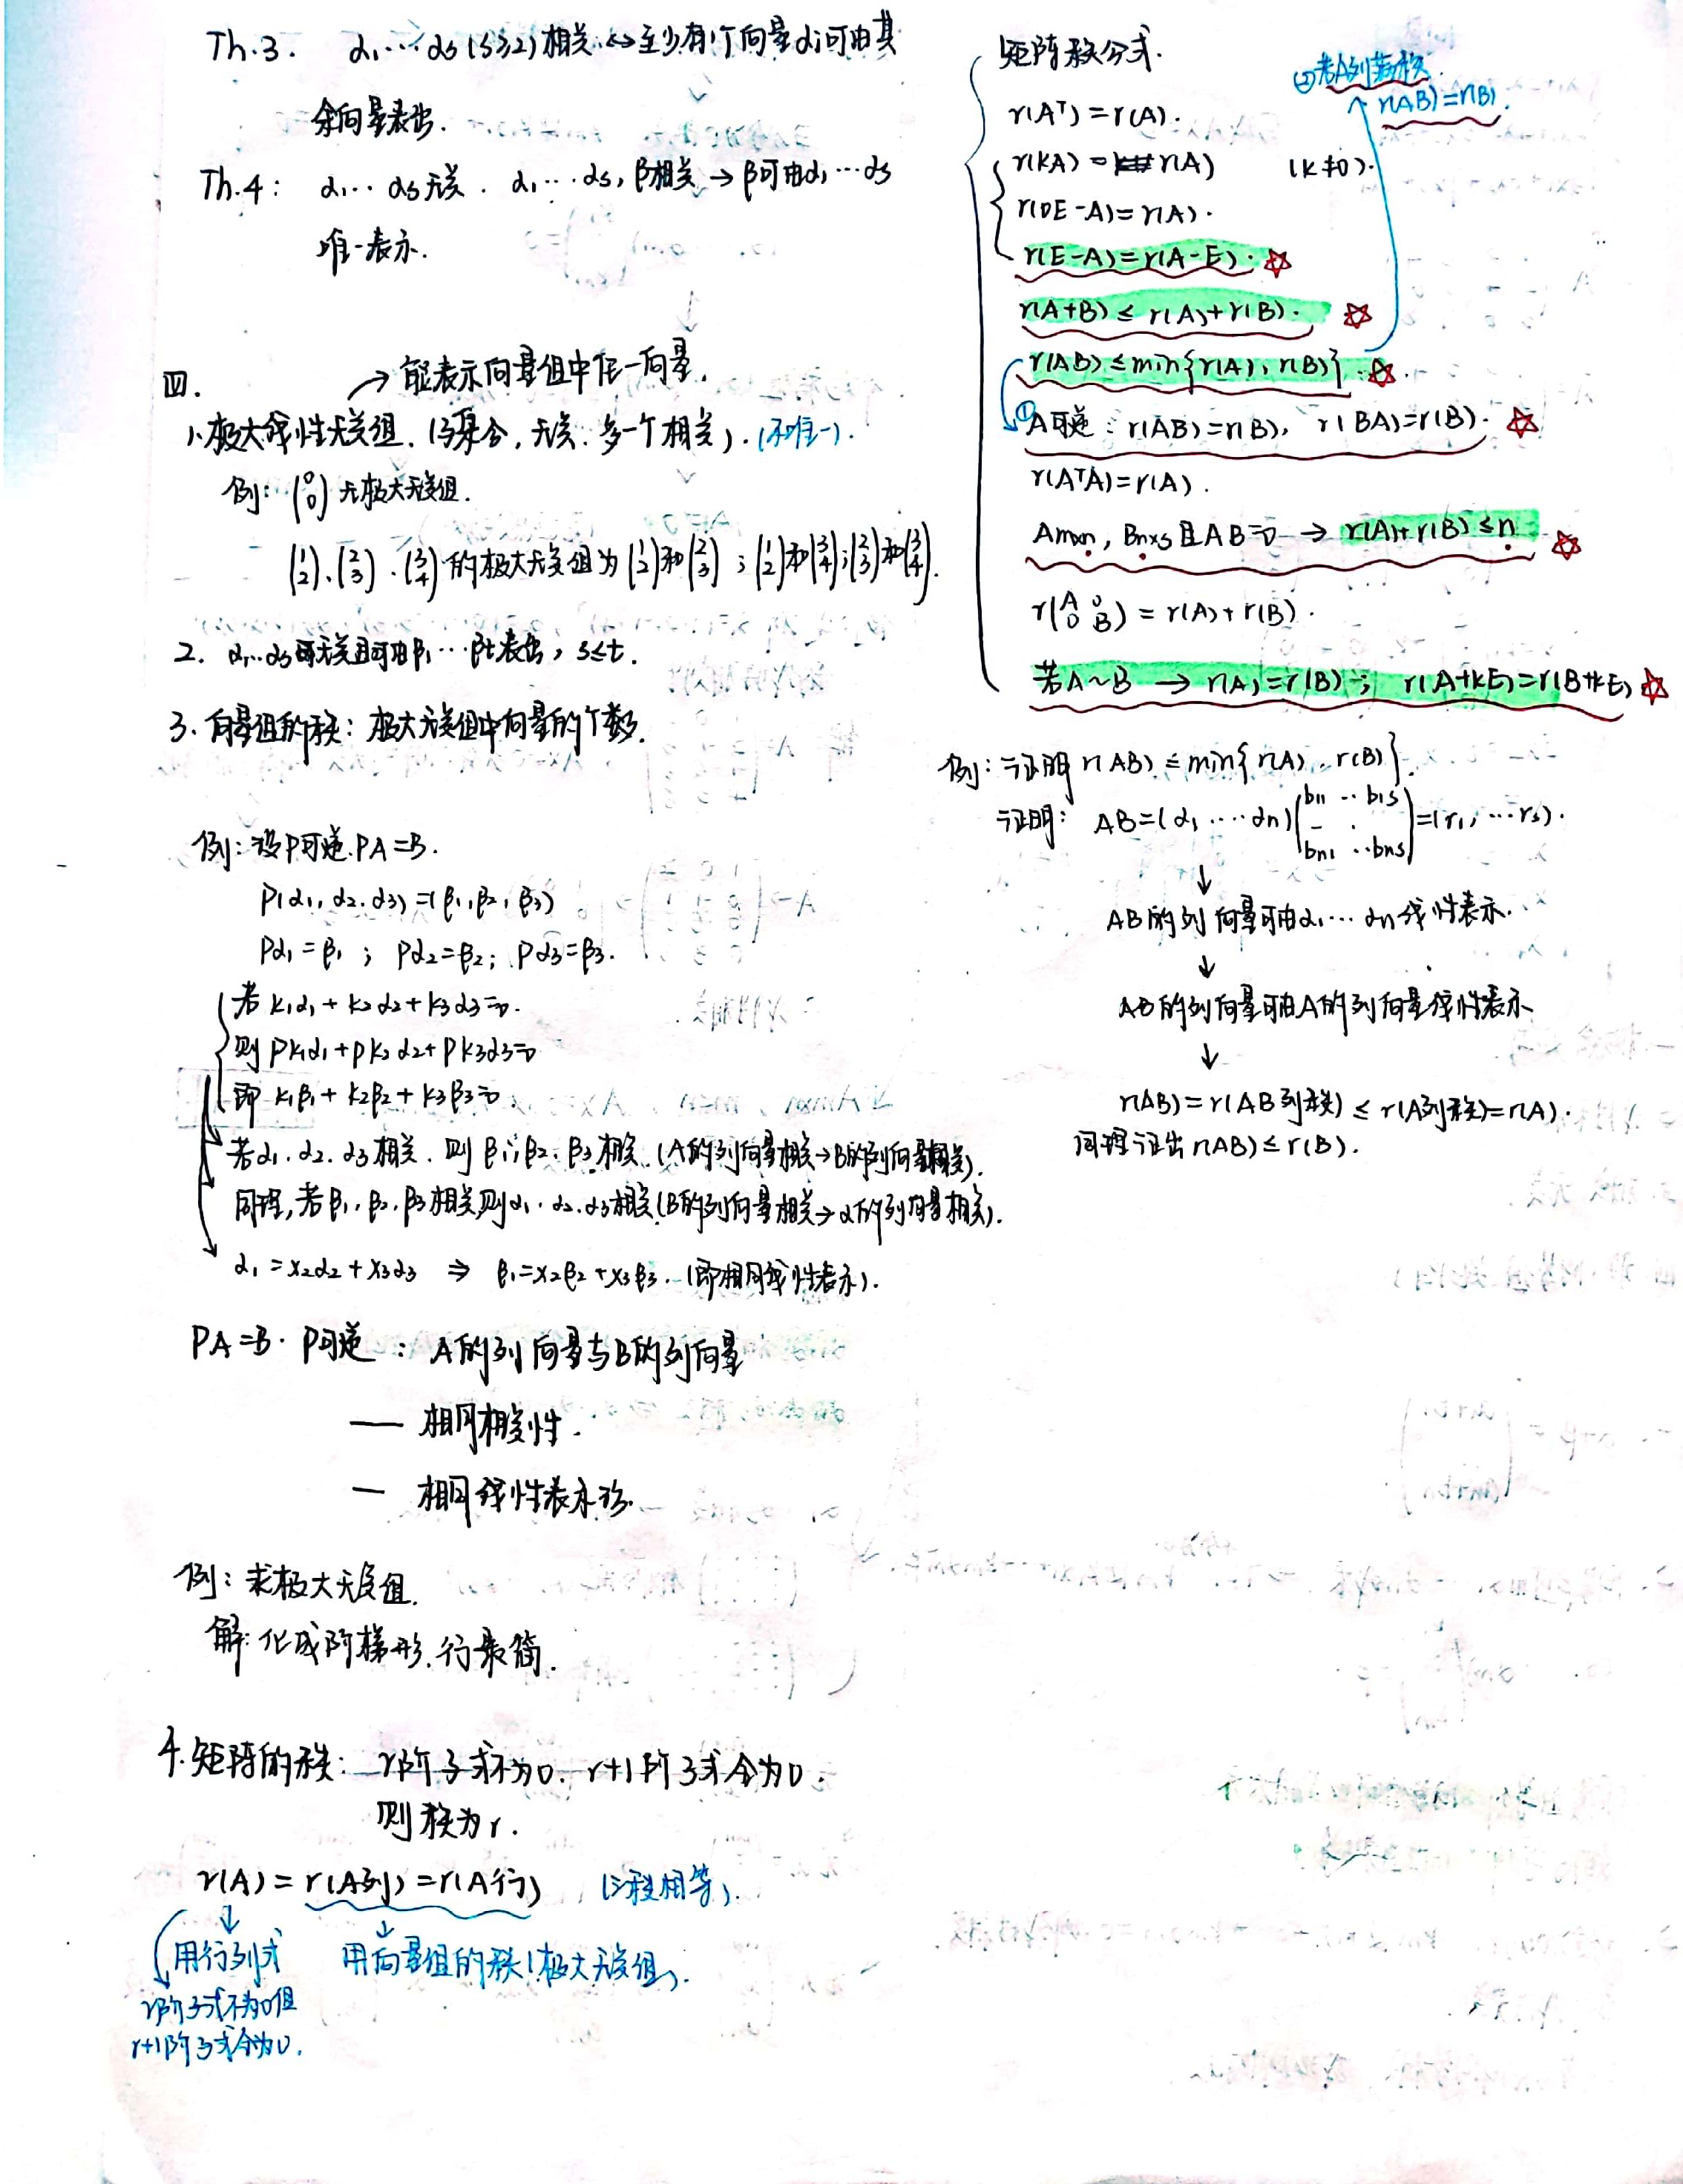 Th.3. α₁…αs (s≥2) 相关 ↔ 至少有1个向量αi可由其
余向量表出.
Th.4: α₁…αs无关. α₁…αs, β相关 → β可由α₁…αs
唯一表示.
四.
→ 能表示向量组中任一向量.
1. 极大线性无关组. (子集合, 无关. 多一个相关). (不唯一).
例: (0 0) 无极大无关组.
(1 2), (2 3), (3 4) 的极大无关组为 (1 2)和(2 3); (1 2)和(3 4); (2 3)和(3 4).
2. α₁…αs无关且可由β₁…βt表出, s≤t.
3. 向量组的秩: 极大无关组中向量的个数.
例: 设P可逆. PA=B.
P(α₁, α₂, α₃)=(β₁, β₂, β₃)
Pα₁=β₁; Pα₂=β₂; Pα₃=β₃.
若 k₁α₁+k₂α₂+k₃α₃=0.
则 Pk₁α₁+Pk₂α₂+Pk₃α₃=0
即 k₁β₁+k₂β₂+k₃β₃=0
若α₁, α₂, α₃相关. 则β₁, β₂, β₃相关. (A的列向量相关→B的列向量相关).
同理, 若β₁, β₂, β₃相关则α₁, α₂, α₃相关(B的列向量相关→α的列向量相关).
α₁=x₂α₂+x₃α₃ ⇒ β₁=x₂β₂+x₃β₃. (即相同线性表示).
PA=B. P可逆: A的列向量与B的列向量
— 相同相关性.
— 相同线性表示
例: 求极大无关组.
解: 化成阶梯形. 行最简.
4. 矩阵的秩: r阶子式不为0. r+1阶子式全为0.
则秩为r.
r(A)=r(A列)=r(A行) (三秩相等).
用行列式 用向量组的秩(极大无关组).
r阶子式不为0但
r+1阶子式全为0.
矩阵秩公式.
②若A列满秩.
r(AB)=r(B).
r(Aᵀ)=r(A).
r(kA)=r(A) (k≠0).
r(0E-A)=r(A).
r(E-A)=r(A-E). ☆
r(A+B)≤r(A)+r(B). ☆
r(AB)≤min{r(A), r(B)}. ☆
①A可逆: r(AB)=r(B), r(BA)=r(B). ☆
r(AᵀA)=r(A).
Am×n, Bn×s且AB=0 → r(A)+r(B)≤n. ☆
r(A 0 0 B)=r(A)+r(B).
若A~B → r(A)=r(B); r(A+kE)=r(B+kE) ☆
例: 证明r(AB)≤min{r(A), r(B)}.
证明: AB=(α₁, …αn)(b11 … b1s … bn1 … bns)=(r₁, …rs).
↓
AB的列向量可由α₁…αn线性表示.
↓
AB的列向量可由A的列向量线性表示
↓
r(AB)=r(AB列秩)≤r(A列秩)=r(A).
同理证出r(AB)≤r(B).